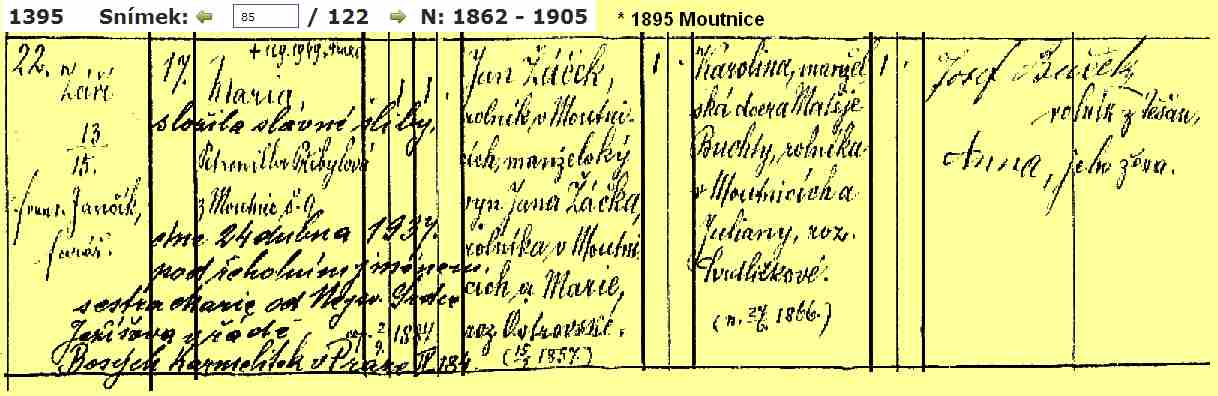 1395 Snímek: 85 / 122 N: 1862 - 1905 * 1895 Moutnice
22. Září
13
15.
Janočík,
farář.
17.
Maria,
složila slavní sliby,
Přibylová
z Moutnic č. 9
dne 24 dubna 1937.
pod řeholním jménem
sestra Marie od Nejsv. Srdce
Ježíšova v řádě
Bosých Karmelitek v Praze IV. 184
1 1
Jan Žáček,
rolník, v Moutni-
cích, manželský
syn Jana Žáčka,
rolníka, v Moutni-
cích, a Marie,
roz. Ostrovské.
1857.)
1
Karolina, manžel-
ská dcera Matěje
Buchty, rolníka
v Moutnicích a
Juliany, roz.
1866.)
1
Josef Buček,
rolník z Těšan,
Anna, jeho žena.